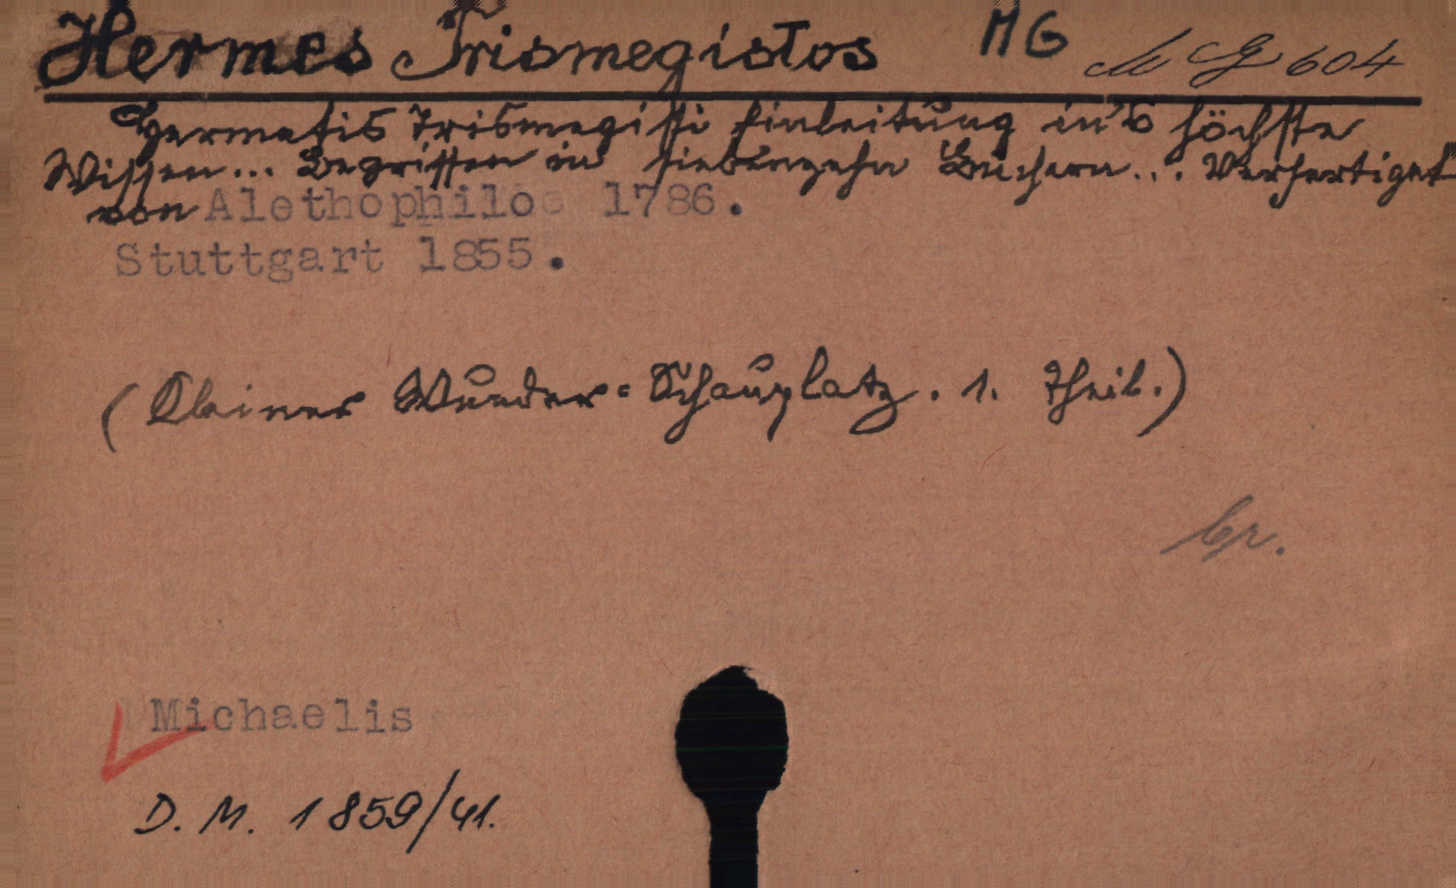 Hermes Trismegistos MG MG 604
Hermetis Trismegisti Einleitung in's höchste
Wissen... Begriffen in siebenzehn Büchern... Verfertiget
von Alethophilo 1786.
Stuttgart 1855.
(Kleiner Wunder=Schauplatz. 1. Theil.)
Michaelis
D. M. 1859/41.